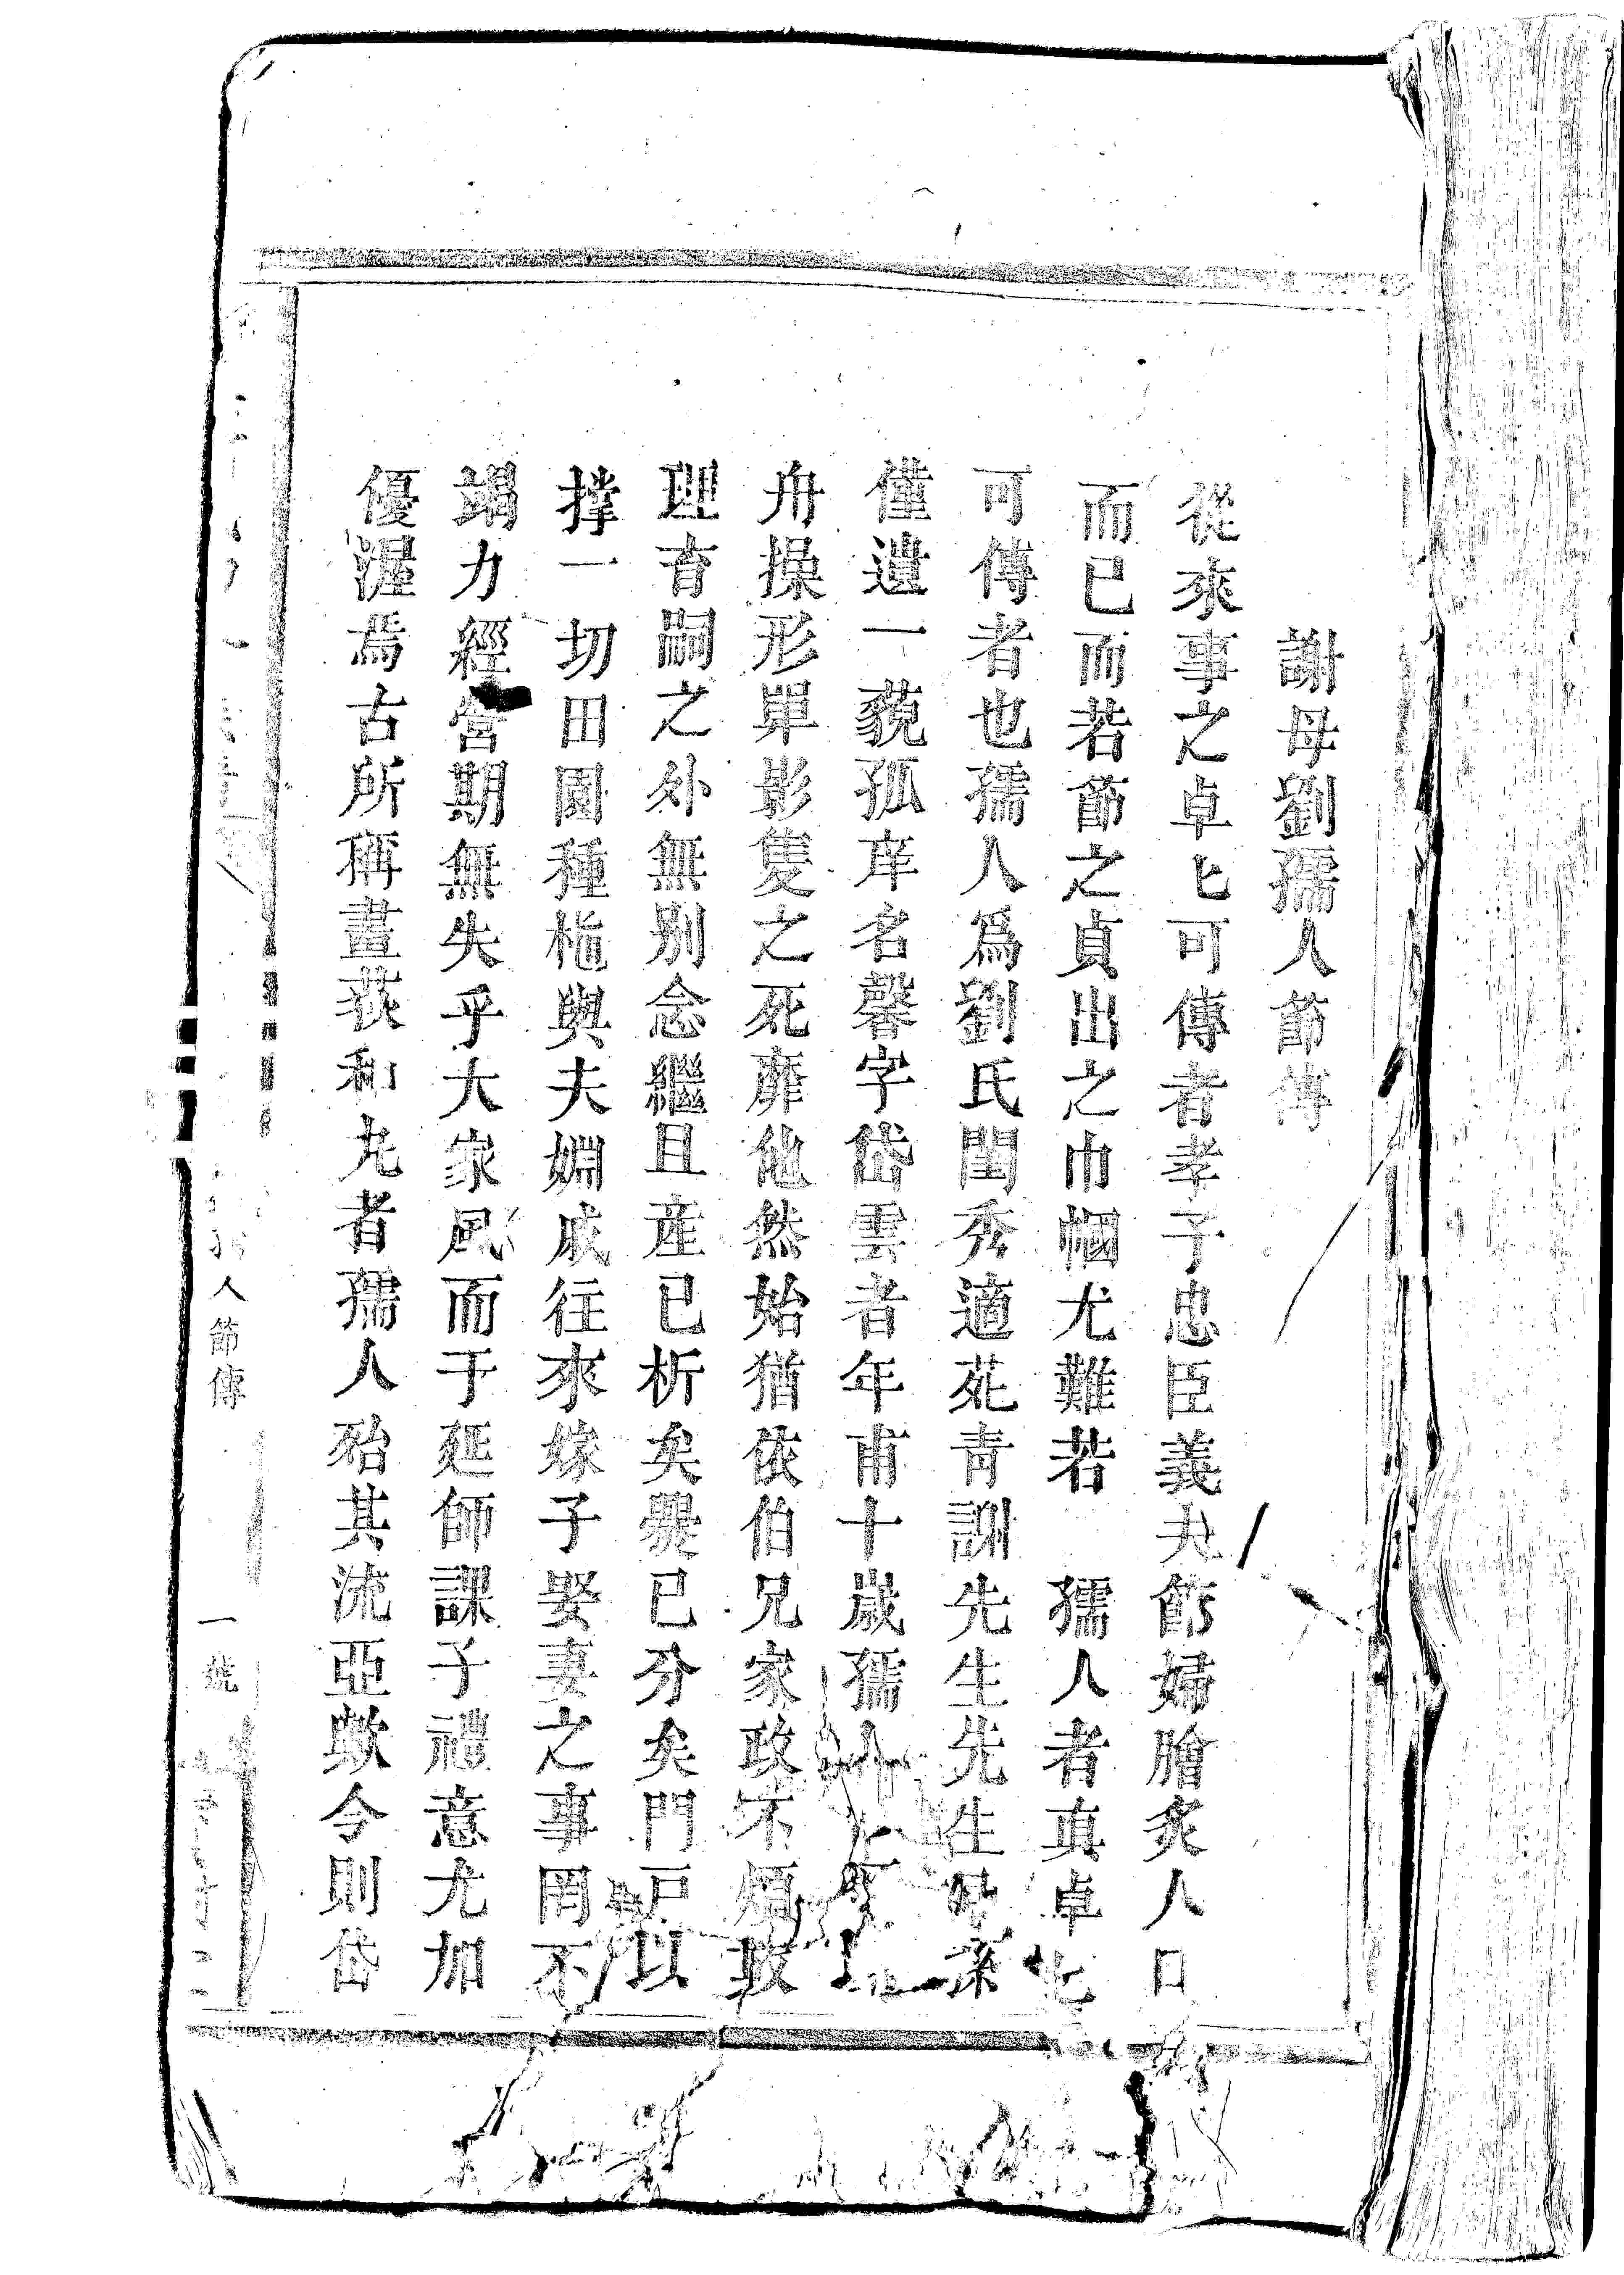 謝母劉孺人節傳
從來事之卓匕可傳者孝子忠臣義夫節婦膾炙人口
而已而若節之貞出之巾幗尤難若 孺人者真卓匕
可傳者也孺人爲劉氏閨秀適茈青謝先生先生早孫
僅遺一藐孤庠名馨字岱雲者年甫十歲孺人
舟操形單影隻之死靡他然始猶依伯兄家政不煩政
理育嗣之外無別念繼且産已析矣爨已分矣門戸以
撑一切田園種植與夫婣戚往來嫁子娶妻之事罔不
竭力經營期無失乎大家風而于延師課子禮意尤加
優渥焉古所稱畫荻和丸者孺人殆其流亞歟今則岱
人節傳
一號